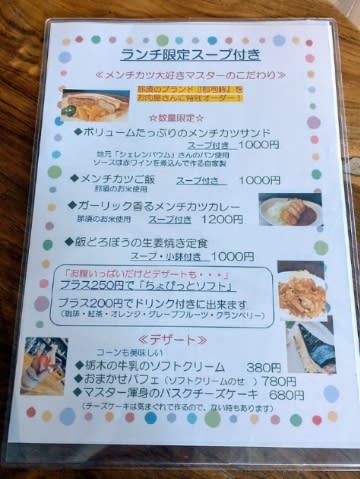 ランチ限定スープ付き
≪メンチカツ大好きマスターのこだわり≫
那須のブランド『郡司豚』を
お肉屋さんに特別オーダー！
☆数量限定☆
◆ボリュームたっぷりのメンチカツサンド
スープ付き 1000円
地元「シェレンバウム」さんのパン使用
ソースは赤ワインを煮込んで作る自家製
◆メンチカツご飯 スープ付き 1000円
那須のお米使用
◆ガーリック香るメンチカツカレー
那須のお米使用 スープ付き 1200円
◆飯どろぼうの生姜焼き定食
スープ・小鉢付き 1000円
「お腹いっぱいだけどデザートも・・・」
プラス250円で「ちょびっとソフト」
プラス200円でドリンク付きに出来ます
（珈琲・紅茶・オレンジ・グレープフルーツ・クランベリー）
≪デザート≫
コーンも美味しい
◆栃木の牛乳のソフトクリーム 380円
◆おまかせパフェ（ソフトクリームのせ ）780円
◆マスター渾身のバスクチーズケーキ 680円
（チーズケーキは気まぐれで作るので、ない時もあります）